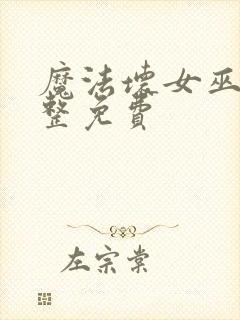 魔法坏女巫
整免费
左宗棠